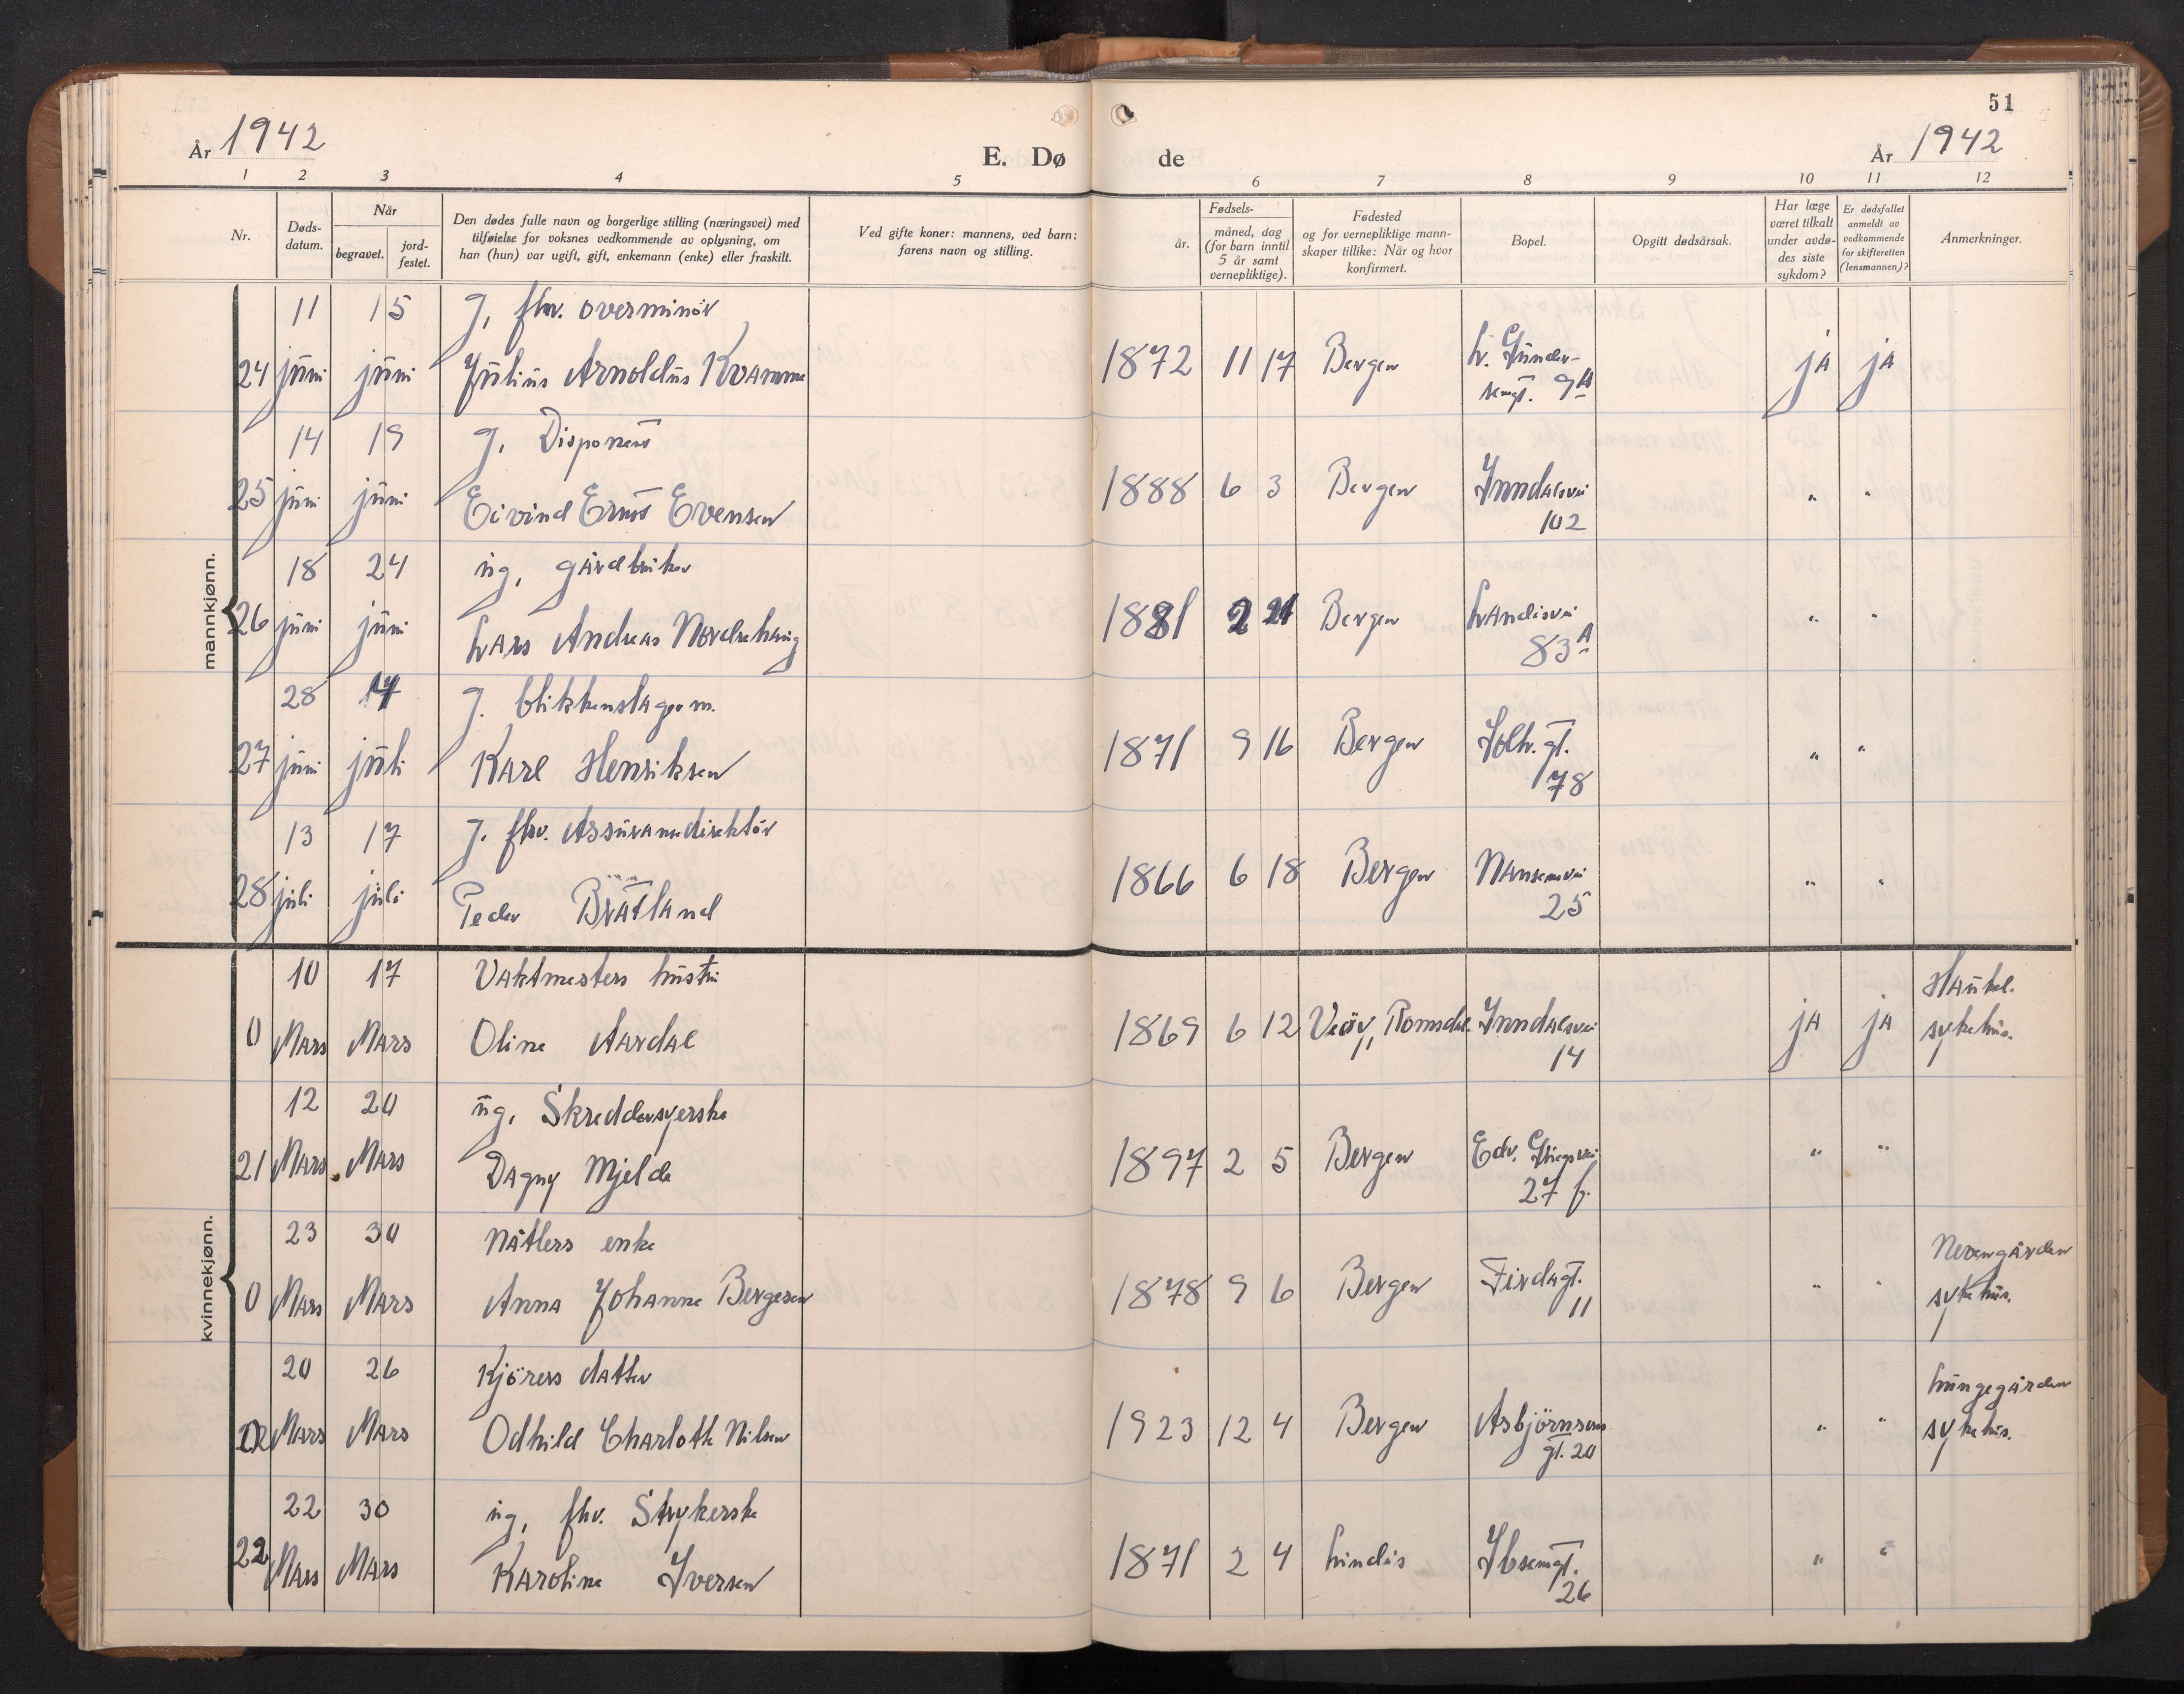 51
År 1942 E. Dø de År 1942
1 2 3 4 5 6 7 8 9 10 11 12
Nr.
Døds-
datum.
Når
begravet.
jord-
festet.
Den dødes fulle navn og borgerlige stilling (næringsvei) med
tilføielse for voksnes vedkommende av oplysning, om
han (hun) var ugift, gift, enkemann (enke) eller fraskilt.
Ved gifte koner: mannens, ved barn:
farens navn og stilling.
Fødsels-
år.
måned, dag
(for barn inntil
5 år samt
vernepliktige).
Fødested
og for vernepliktige mann-
skaper tillike: Når og hvor
konfirmert.
Bopel.
Opgitt dødsårsak.
Har læge
været tilkalt
under avdø-
des siste
sykdom?
Er dødsfallet
anmeldt av
vedkommende
for skifteretten
(lensmannen)?
Anmerkninger.
mannkjønn.
11 15 g, fhv. overminör
24 juni juni Julius Arnoldus Kvamme 1872 11 17 Bergen ja ja
9 A
14 19 g, Disponent
25 juni juni Eivind Ernst Evensen 1888 6 3 Bergen Inndalsvei " "
102
18 24 ug, gårdbruker
26 juni juni Lars Andreas Nordrehaug 1881 2 21 Bergen Landåsvei " "
83 A
28 17 g. blikkenslager m.
27 juni juli Karl Henriksen 1871 9 16 Bergen Solh. gt. " "
78
13 17 g. fhv. Assuransedirektör
28 juli juli Peder Bratland 1866 6 18 Bergen Nansensvei " "
25
kvinnekjønn.
10 17 Vaktmesters hustru Haukel.
0 Mars Mars Oline Aardal 1869 6 12 Veöy, Romsdal Inndalsvei ja ja sykehus.
14
12 20 ug, Skreddersyerske
21 Mars Mars Dagny Mjelde 1897 2 5 Bergen Edv. Griegsvei " "
27 b.
23 30 Nåtlers enke Nevengården
0 Mars Mars Anna Johanne Bergesen 1878 9 6 Bergen Firdagt. " " sykehus.
11
20 26 Kjörers datter Lungegården
Mars Mars Odhild Charlotte Nilsen 1923 12 4 Bergen Asbjörnsens " " sykehus.
gt. 20
22 30 ug, fhv. Strykerske
22 Mars Mars Karoline Iversen 1871 2 4 Lindås Ibsensgt. " "
26